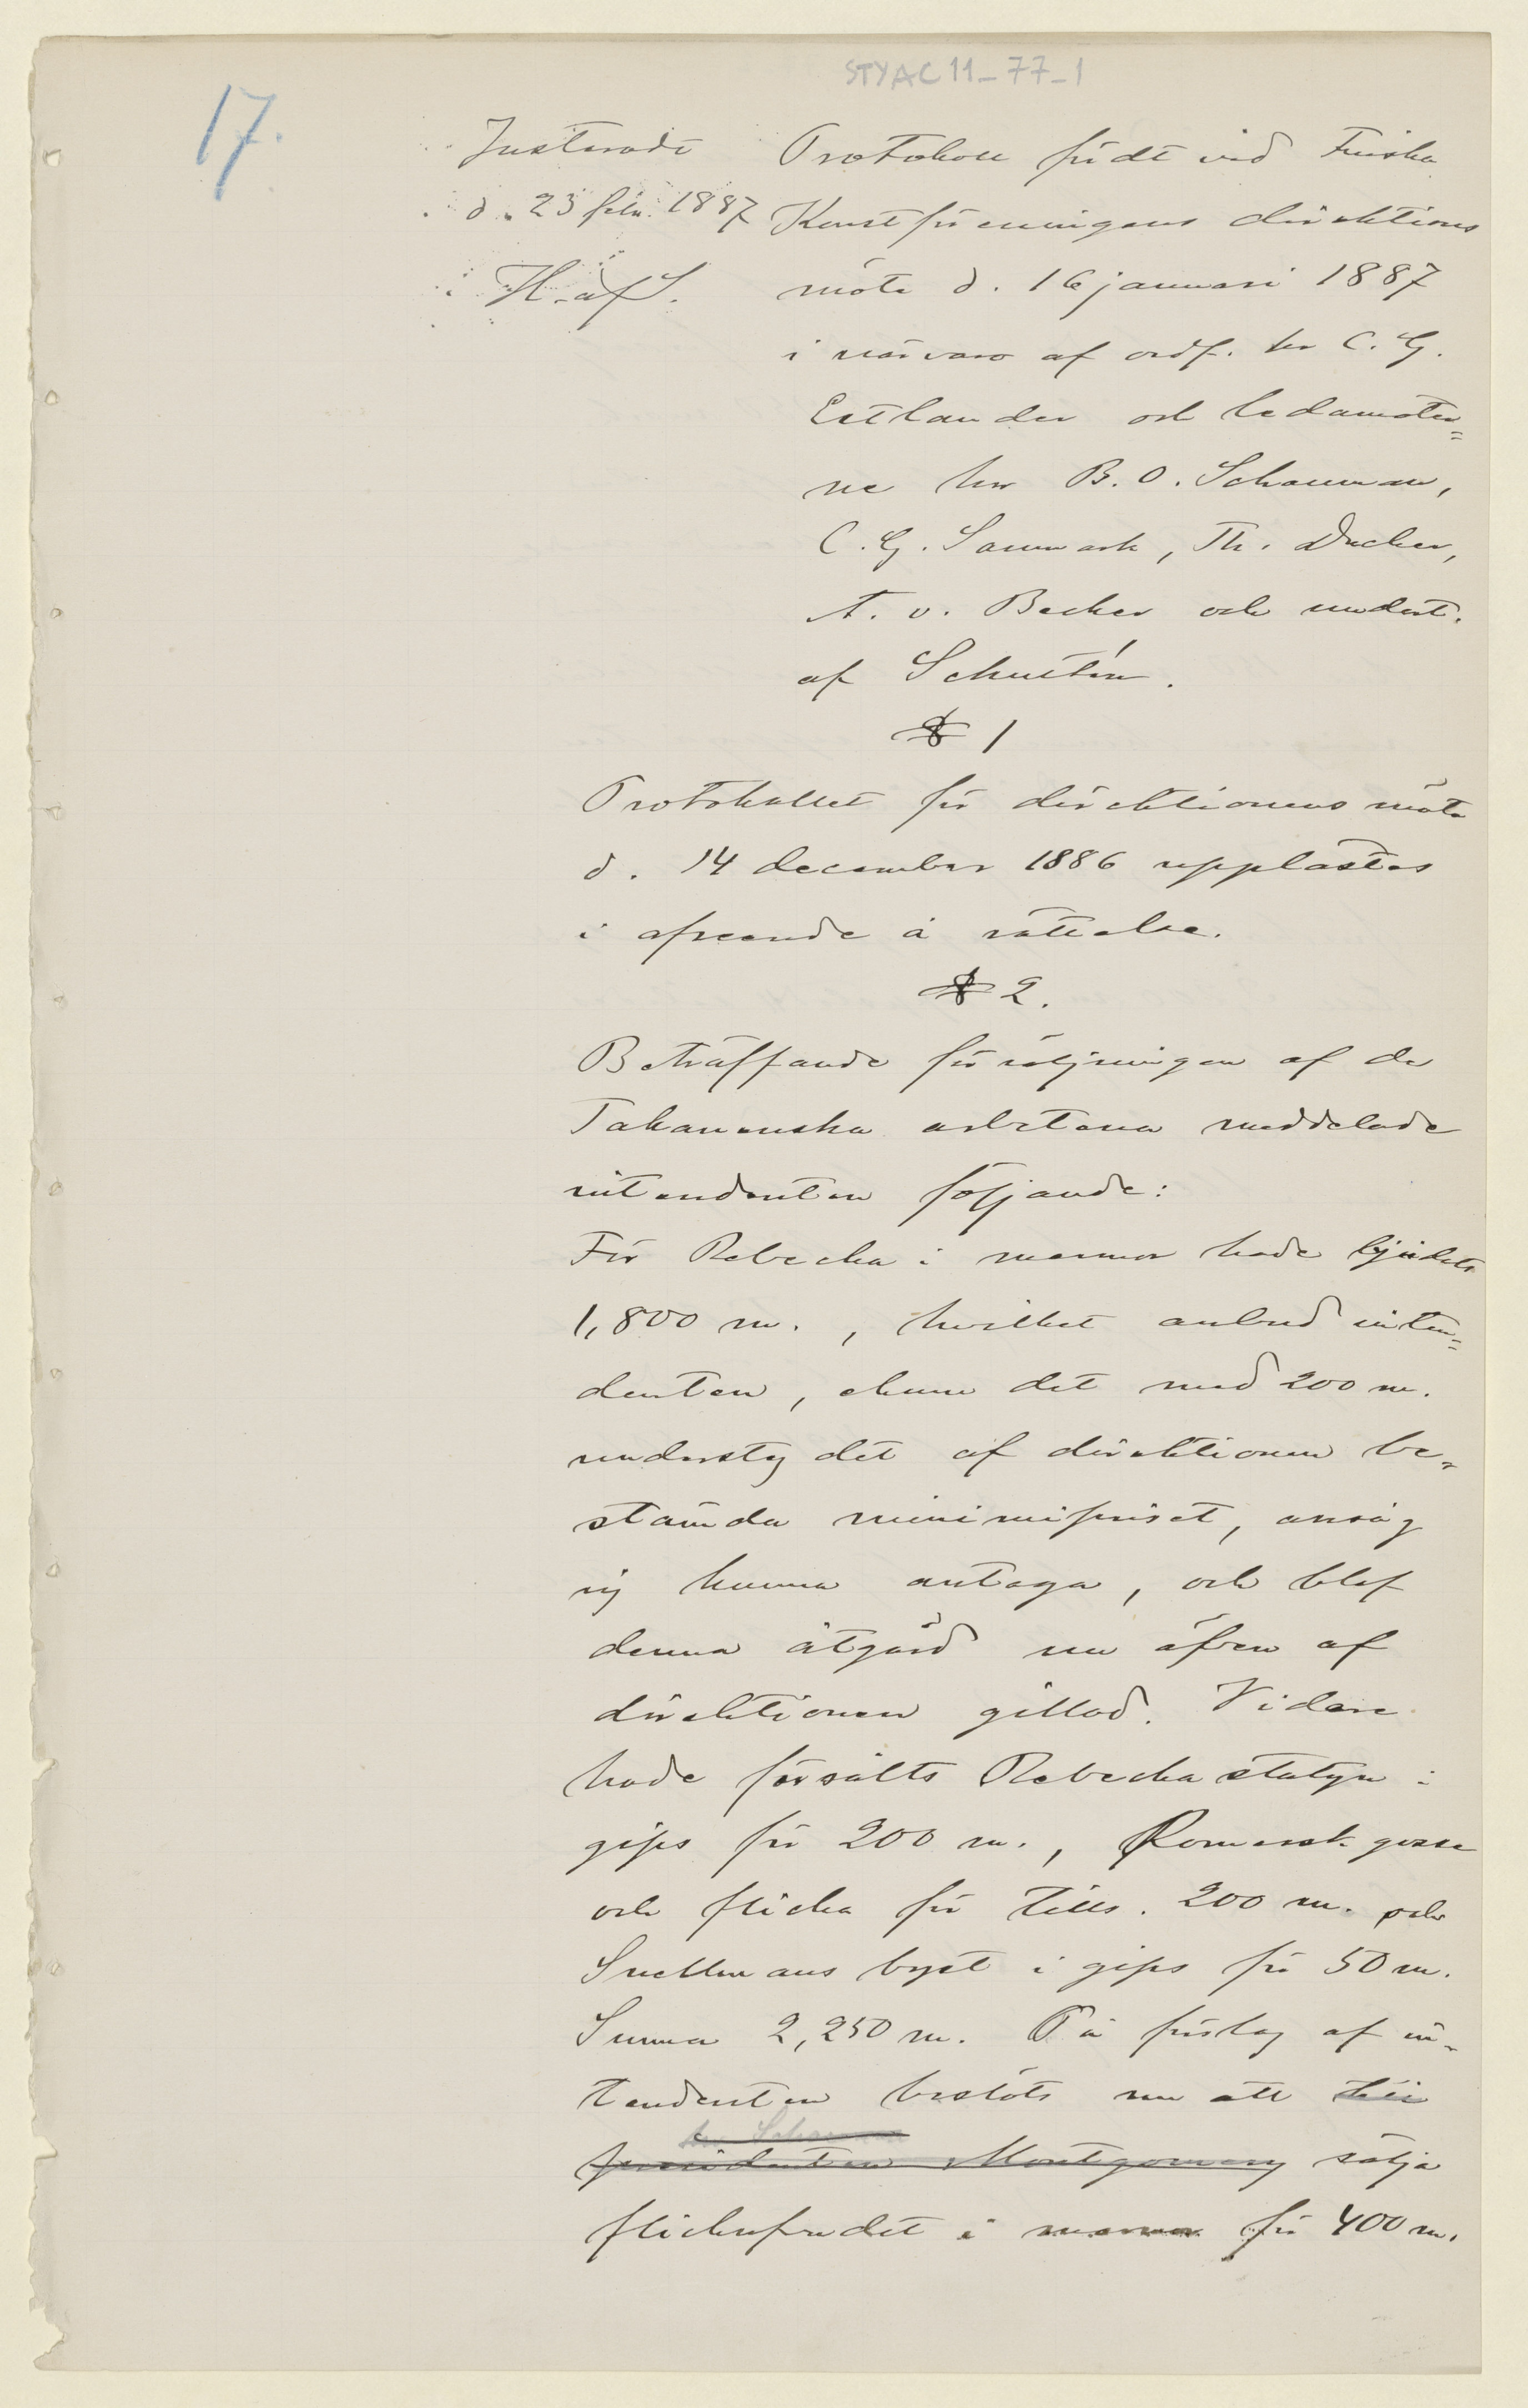 STYAC 11_77_1
17.
Justerade
d. 23 febr. 1887
H. af S.
Protokoll fördt vid Finska
Konstföreningens direktions
möte d. 16 januari 1887
i närvaro af ordf. hr C. G.
Estlander och ledamöter=
ne hrr B. O. Schauman,
C. G. Sanmark, Th. Decker,
A. v. Becker och undert.
af Schultén.
§ 1
Protokollet för direktionens möte
d. 14 december 1886 upplästes
i afseende å rättelse.
§ 2.
Beträffande försäljningen af de
Takanenska arbetena meddelade
intendenten följande:
För Rebecka i marmor hade bjudits
1,800 m. , hvilket anbud inten=
denten, ehuru det med 200 m.
understeg det af direktionen be-
stämda minimipriset, ansåg
sig kunna antaga, och blef
denna åtgärd nu äfven af
direktionen gillad. Vidare
hade försålts Rebecka statyn i
gips för 200 m., Romersk gosse
och flicka för tills. 200 m. och
Snellmans byst i gips för 50 m.
Summa 2,250 m. På förslag af in-
tendenten beslöts nu att till
hr Schauman
presidenten Montgomery sälja
flickhufvudet i marmor för 400 m.